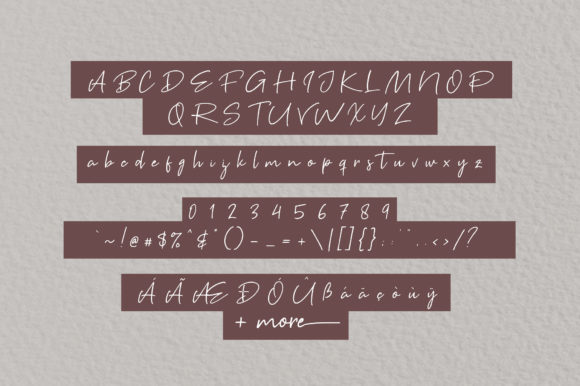 A B C D E F G H I J K L M N O P
Q R S T U V W X Y Z
a b c d e f g h i j k l m n o p q r s t u v w x y z
0 1 2 3 4 5 6 7 8 9
` ~ ! @ # $ % ^ & * ( ) - _ = + \ | [ ] { } : ; " ' , . < > / ?
Á Ã Æ Ð Ó Û ß á ä ç ò ù ÿ
+ more